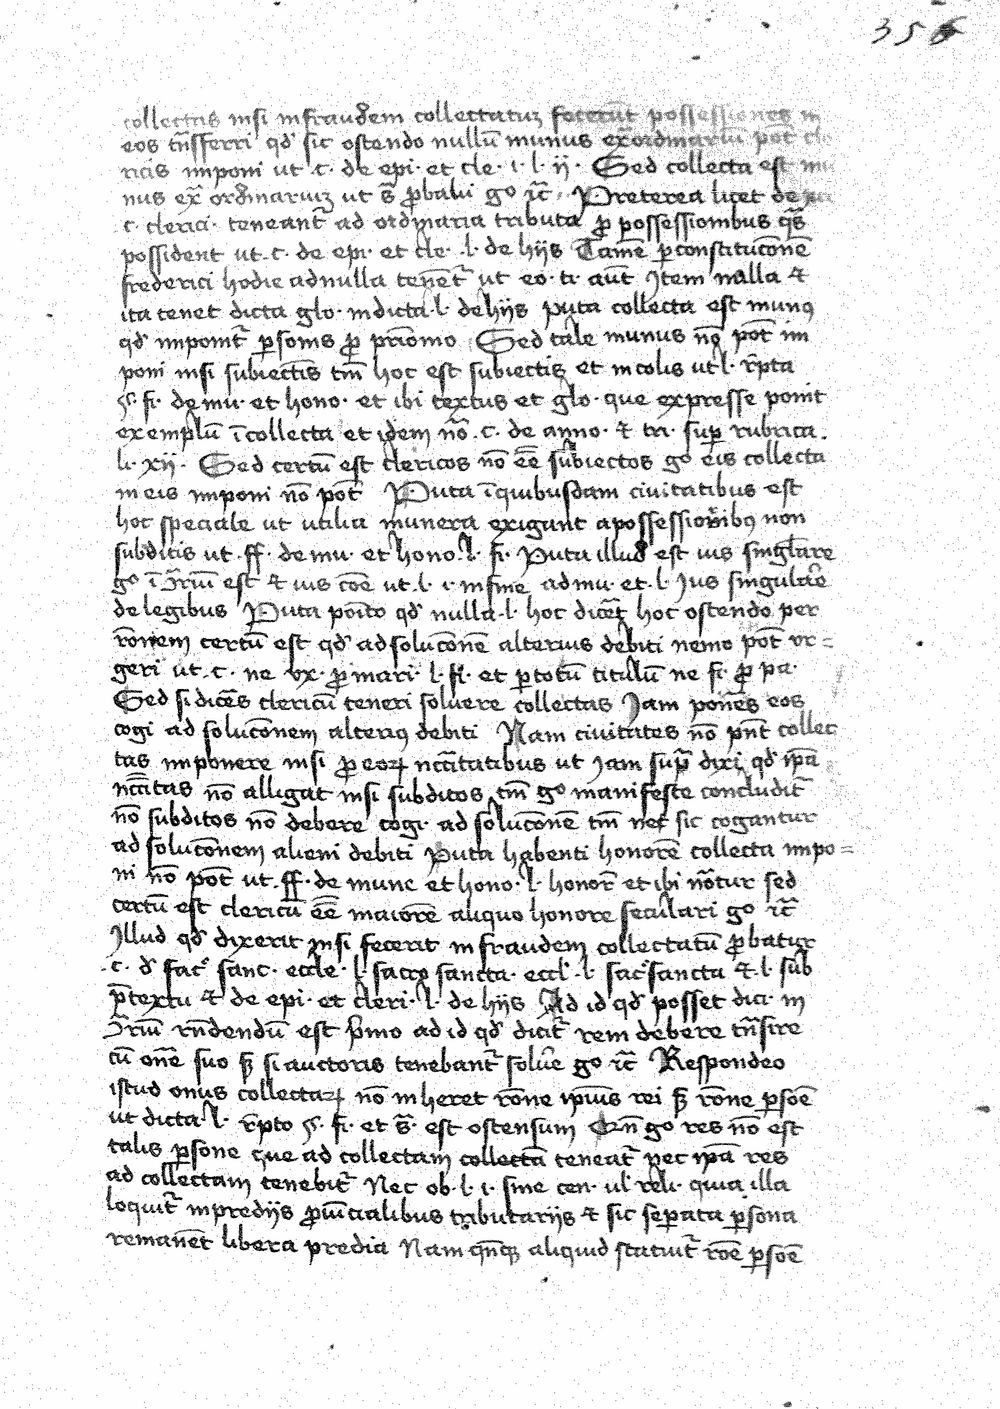 356
collectas nisi in fraudem collectatuꝫ fecerūt possessiones in
eos trāsferri qd̕ sic ostendo nullū munus ex̄ordinariū pōt cle
ricis imponi ut .c. de epi. et cle. i. l. ij. Sed collecta est mu
nus ex̄ ordinariuꝫ ut s̄ probaui gͦ ꝛc̄. Preterea licet de
c. clerici teneant̄ ad ordinaria tributa ꝓ possessionibus qs̄
possident ut .c. de epi. et cle. .l. de hijs Tamē ꝑ constitucōnē
frederici hodie ad nulla tenēt̄ ut eo. ti. aut̄ Item nulla ⁊
ita tenet dicta glo. in dicta .l. de hijs puta collecta est munꝰ
qd̕ imponit̄ ꝑsonis ꝓ prīomo Sed tale munus nō pōt im
poni nisi subiectis tm̄ hoc est subiectis et incolis ut l. rp̄ta
§. fi. de mu. et hono. et ibi textus et glo. que expresse ponit
exemplū ī collecta et idem nō. .c. de anno. ⁊ tri. suꝑ rubrica.
li. xij. Sed certū est clericos nō eē subiectos gͦ eis collecta
in eis imponi nō pōt Puta ī quibusdam ciuitatibus est
hoc speciale ut utilia munera exigant a possessionibꝰ non
subditis ut .ff. de mu. et hono. l. fi. Puta illud est ius singl̄are
gͦ ī ꝯr̄iū est ⁊ ius cōe ut .l. i. in fine ad mu. et .l. Jus singulār̄e
de legibus Puta pōito qd̕ nulla .l. hoc dicēt hoc ostendo per
rōnem certū est qd̕ ad solucōnē alterius debiti nemo pōt vr=
geri ut .c. ne vx. ꝓ mari. l. fi. et ꝑ totū titulū ne fi. ꝓ pa.
Sed si dicēs clericū teneri soluere collectas Jam ponēs eos
cogi ad solucōnem alteriꝰ debiti Nam ciuitates nō pn̄t collec
tas imponere nisi ꝓ eoꝝ nc̄citatibus ut iam supͣ dixi qd̕ ip̄a
nc̄citas nō alligat nisi subditos tm̄ gͦ manifeste concludit̄
nō subditos nō debere cogi ad solucōnē tm̄ nec sic cogantur
ad solucōnem alieni debiti puta habenti honorē collecta impo=
ni nō pōt ut .ff. de mune et hono. l. honor̄ et ibi nōtur sed
certū est clericū eē maiorē aliquo honore seculari gͦ ꝛc̄
Illud qd̕ dixerit nisi fecerit in fraudem collectatū ꝓbatur
.c. d̕ sac̄ sanc. eccle. l. sacro sancta. eccl̕. l. sac̄sancta ⁊ .l. sub
p̄textu ⁊ de epi. et cleri. l. de hijs Ad id qd̕ posset dici in
ꝯr̄iū rn̄dendū est pͥmo ad id qd̕ dicit̄ rem debere trāsire
cū onē suo sꝫ si auctoris tenebant̄ solue̕ gͦ ꝛc̄ Respondeo
istud onus collectaꝝ nō inheret rōne ipsius rei sꝫ rōne ꝑsōe
ut dicta .l. rp̄to §. fi. et s̄. est ostensum Cū gͦ res nō est
talis ꝑsone que ad collectam collectā teneat̄ nec ip̄a res
ad collectam tenebit̄ Nec ob. l. i. sine cen. ul̕ reli. quia illa
loquit̄ in predijs ꝓuīcialibus tributarijs ⁊ sic seꝑata ꝑsona
remanēt libera predia Nam qn̄cꝫ aliquid statuit̄ rōe ꝑsōe